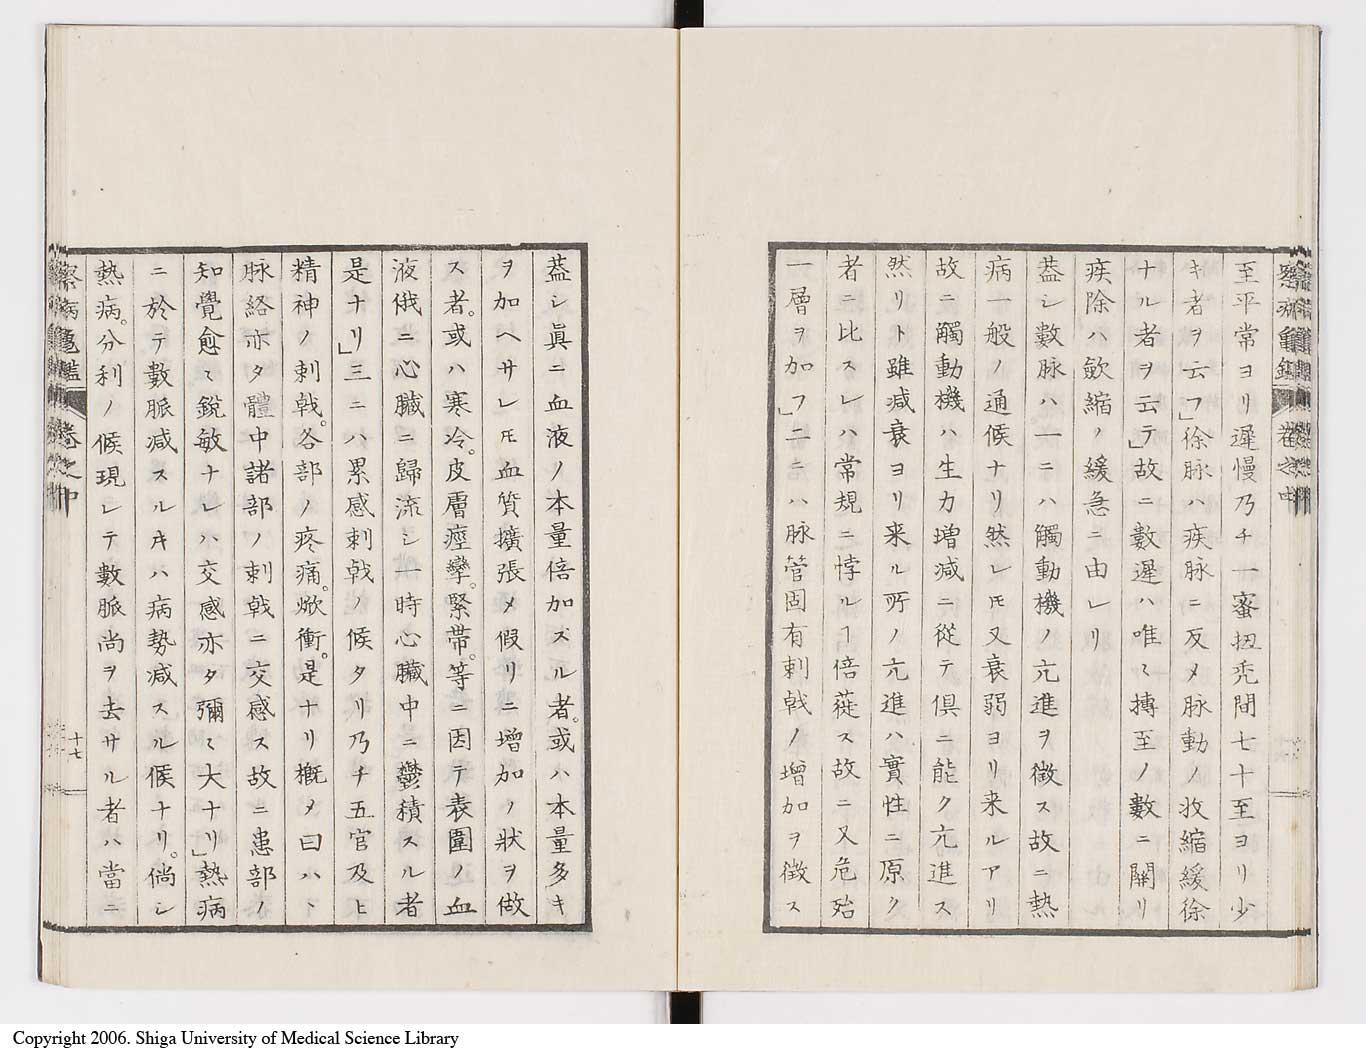 察病亀鑑 卷之中
至平常ヨリ遲慢乃チ一蜜扭禿間七十至ヨリ少
キ者ヲ云フ」徐脉ハ疾脉ニ反メ脉動ノ收縮緩徐
ナル者ヲ云テ」故ニ數遲ハ唯〻搏至ノ數ニ關リ
疾除ハ歛縮ノ緩急ニ由レリ
葢シ數脉ハ一ニハ觸動機ノ亢進ヲ徴ス故ニ熱
病一般ノ通候ナリ然レ𪜈又衰弱ヨリ来ルアリ
故ニ觸動機ハ生力増減ニ從テ倶ニ能ク亢進ス
然リト雖減衰ヨリ来ル所ノ亢進ハ實性ニ原ク
者ニ比スレハ常規ニ悖ルヿ倍蓰ス故ニ又危殆
一層ヲ加フ」二ニハ脉管固有刺戟ノ増加ヲ徴ス
葢シ眞ニ血液ノ本量倍加スル者。或ハ本量多キ
ヲ加ヘサレ𪜈血質擴張メ假リニ増加ノ狀ヲ做
ス者。或ハ寒冷。皮膚痙攣。緊帶。等ニ因テ表圍ノ血
液俄ニ心臓ニ歸流シ一時心臓中ニ鬱積スル者
是ナリ」三ニハ累感刺戟ノ候タリ乃チ五官及ヒ
精神ノ刺戟。各部ノ疼痛。焮衝。是ナリ概メ曰ハヽ
脉絡亦タ體中諸部ノ刺戟ニ交感ス故ニ患部ノ
知覺愈〻銳敏ナレハ交感亦タ彌〻大ナリ」熱病
ニ於テ數脈減スルキハ病勢減スル候ナリ。倘シ
熱病。分利ノ候現レテ數脈尚ヲ去サル者ハ當ニ
察病亀鑑 卷之中
十七
Copyright 2006. Shiga University of Medical Science Library